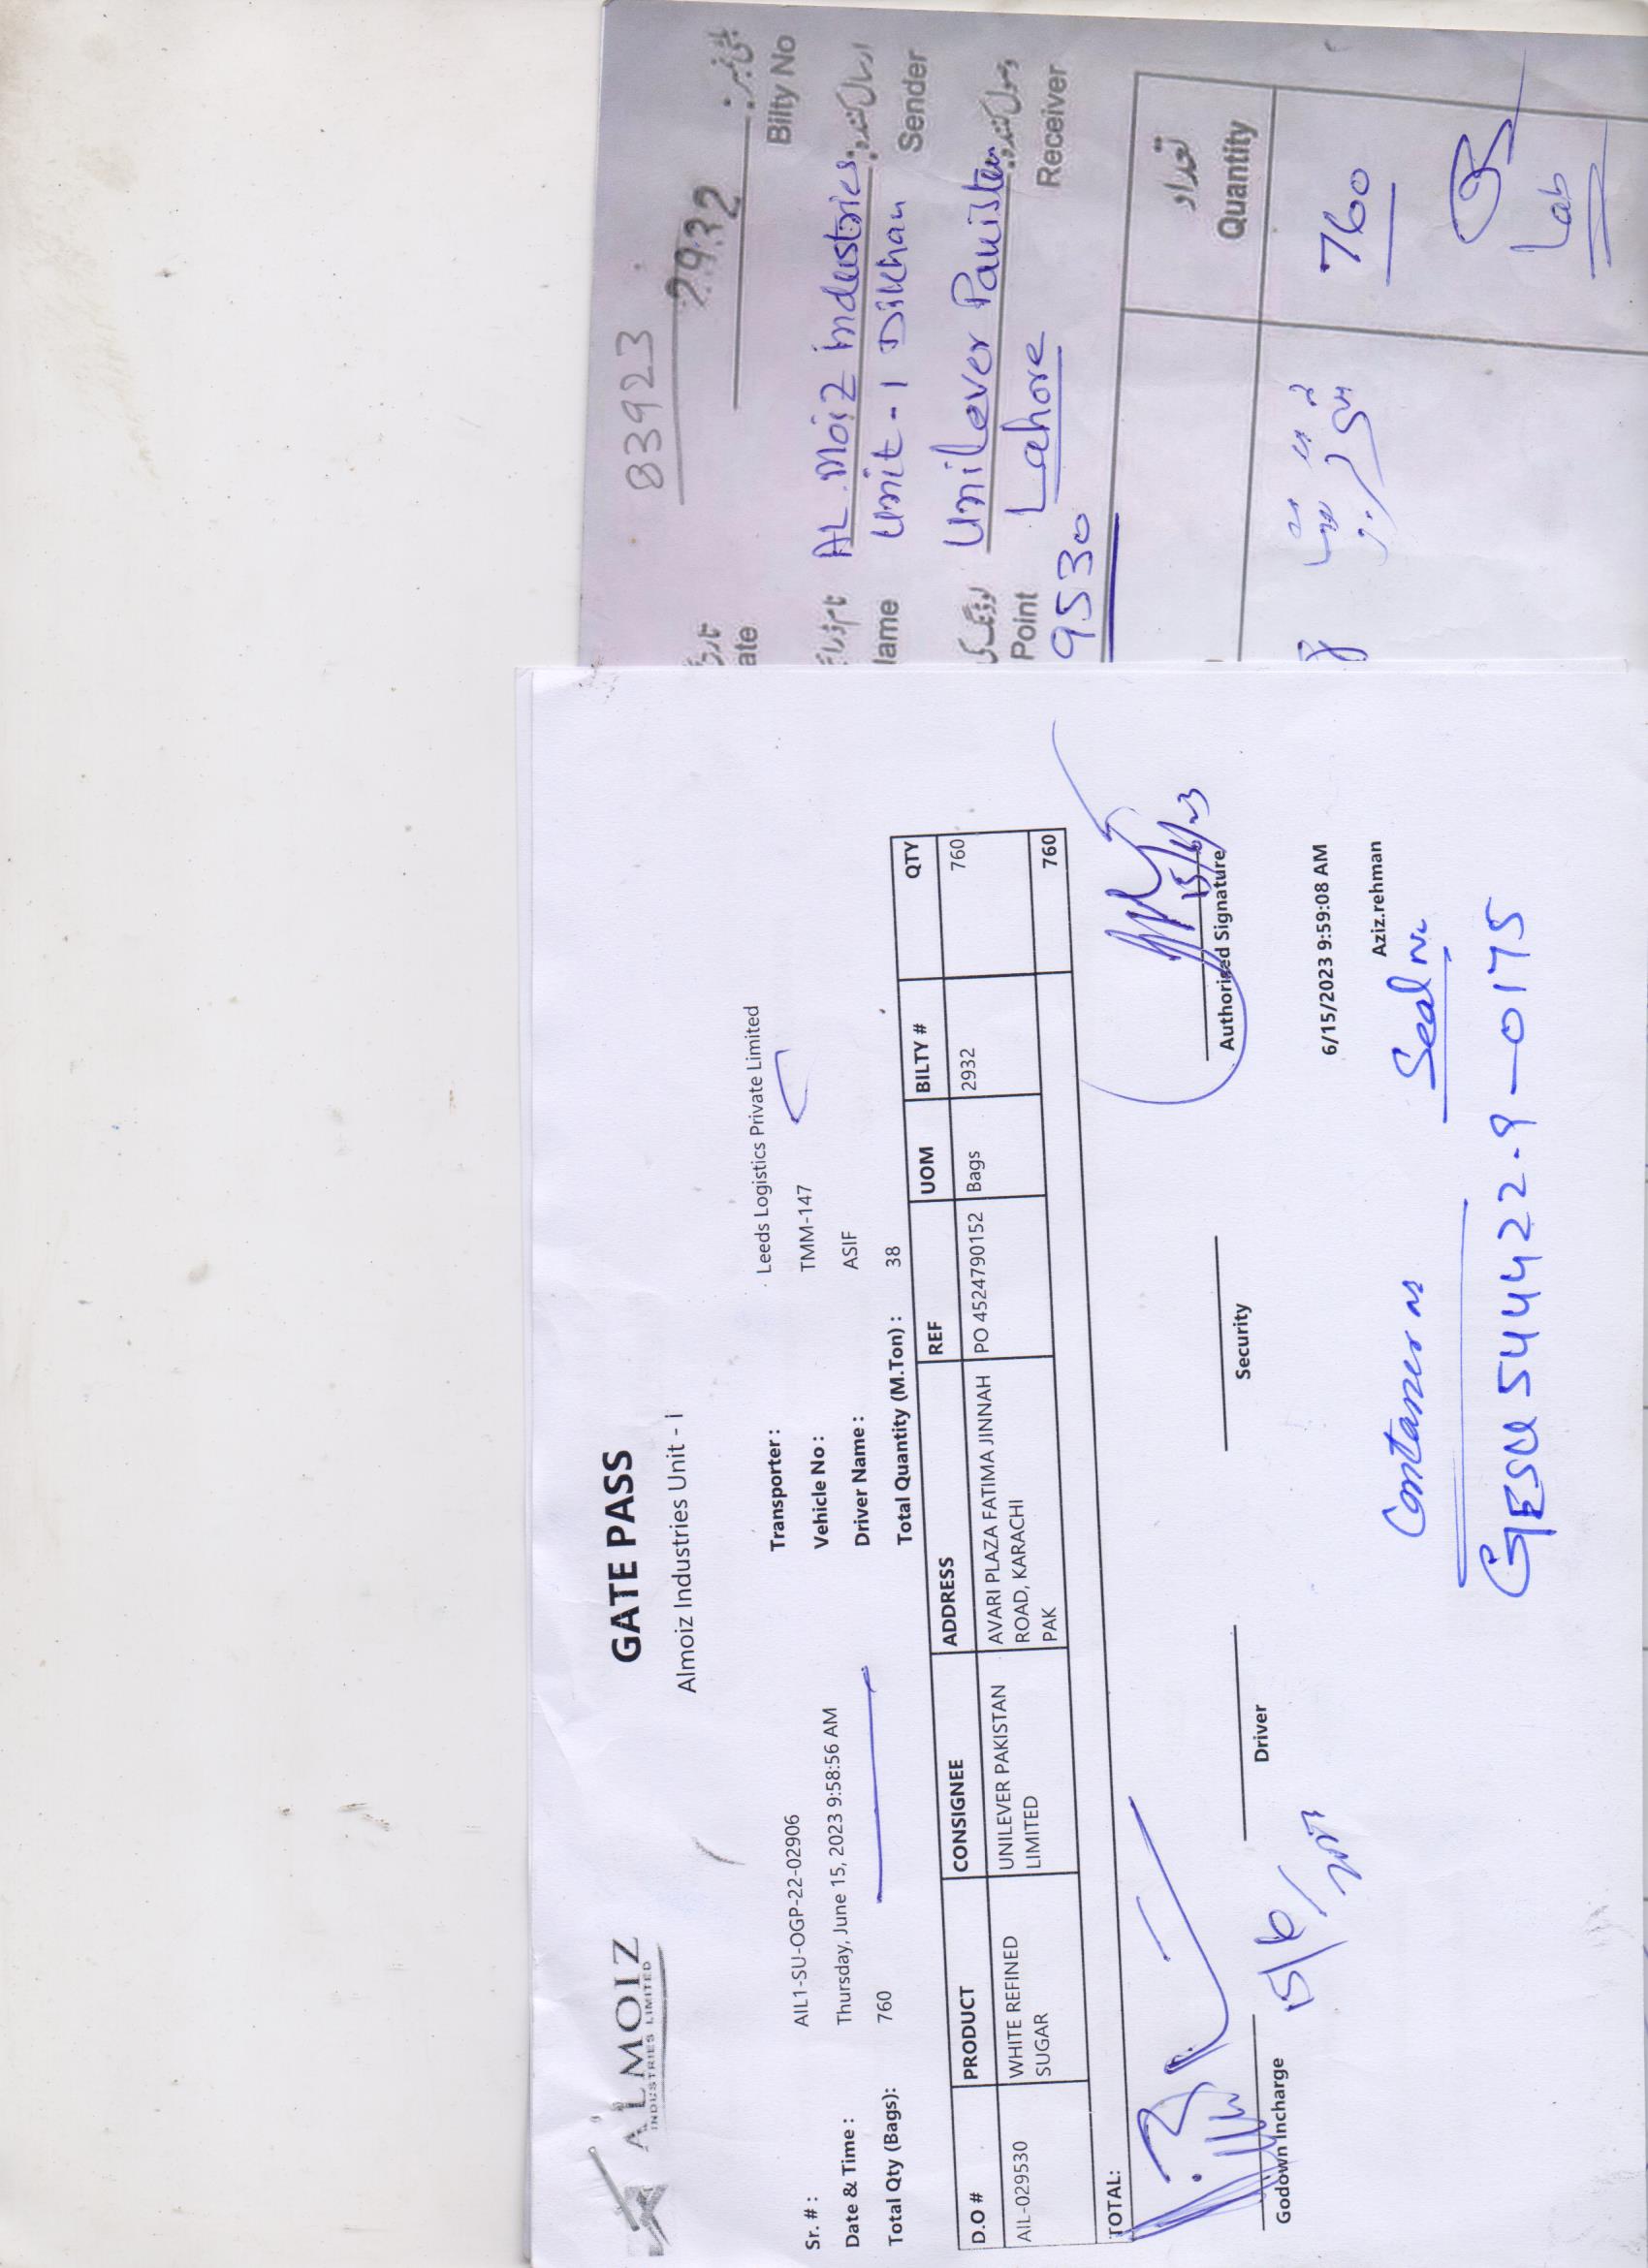 ALMOIZ
INDUSTRIES LIMITED
GATE PASS
Almoiz Industries Unit - I
Sr. # : AIL1-SU-OGP-22-02906
Date & Time : Thursday, June 15, 2023 9:58:56 AM
Total Qty (Bags): 760
Transporter : Leeds Logistics Private Limited
Vehicle No : TMM-147
Driver Name : ASIF
Total Quantity (M.Ton) : 38
D.O # PRODUCT CONSIGNEE ADDRESS REF UOM BILTY # QTY
AIL-029530 WHITE REFINED SUGAR UNILEVER PAKISTAN LIMITED AVARI PLAZA FATIMA JINNAH ROAD, KARACHI PAK PO 4524790152 Bags 2932 760
TOTAL: 760
15/6/
15/6/23
Godown Incharge Driver Security Authorized Signature
6/15/2023 9:59:08 AM
Aziz.rehman
Contaner no Seal no
GESU 54422-9-0175
83923
2932
Bilty No
ate
AL.Moiz industries
ارسال کنندہ
Sender
lame
Unit-1 DIKhan
Unilever Pakistan
وصول کنندہ
Receiver
Point
Lahore
9530
تعداد
Quantity
760
Lab